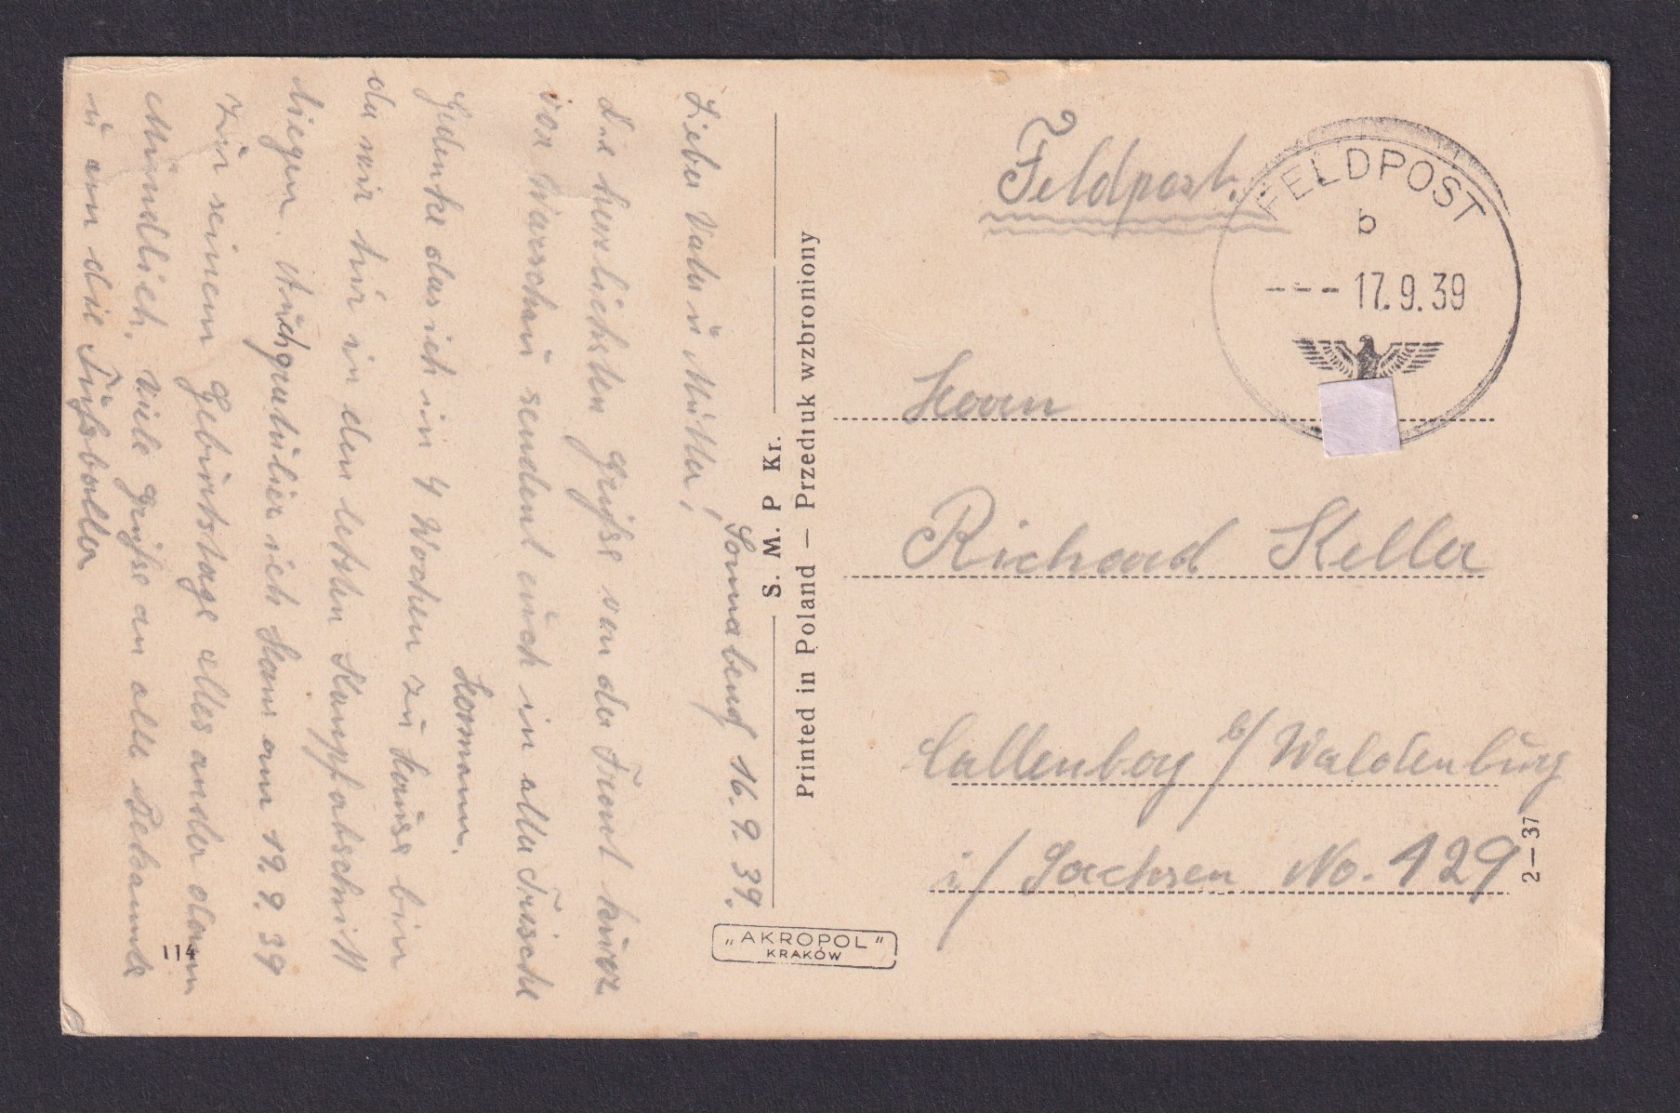 Sonnabend 16. 9. 39.
Lieber Vater ü Mütter!
Die herzlichsten Grüße von der Front kürz
vor Warschaü sendent eüch in aller Frische
Hermann.
Gedenke das ich in 4 Wochen zü Haüse bin
da wir hir in den letzten Kampfabschnitt
liegen. Aüch gratülier ich Hans am 19. 9. 39
zü seinem Gebürtstage alles ander dann
Mündlich. Viele Grüße an alle Bekannte
ü an die Füßballer
114
S. M. P Kr.
Printed in Poland — Przedruk wzbroniony
"AKROPOL"
KRAKÓW
Feldpost.
FELDPOST
b
--- 17.9.39
Herrn
Richard Keller
Callenberg b/ Waldenbürg
i/ Sachsen No. 129
2—37